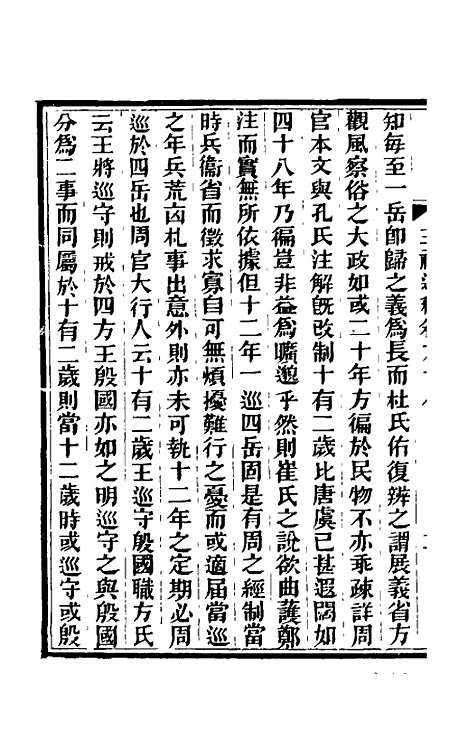 知每至一岳卽歸之義爲長而杜氏佑復辨之謂展義省方
觀風察俗之大政如或二十年方徧於民物不亦乖疎詳周
官本文與孔氏注解旣改制十有二歲比唐虞已甚遐闊如
四十八年乃徧豈非益爲曠邈乎然則崔氏之說欲曲護鄭
注而實無所依據但十二年一巡四岳固是有周之經制當
時兵衞省而徵求寡自可無煩擾難行之憂而或適屆當巡
之年兵荒凶札事出意外則亦未可執十二年之定期必周
巡於四岳也周官大行人云十有二歲王巡守殷國職方氏
云王將巡守則戒於四方王殷國亦如之明巡守之與殷國
分爲二事而同屬於十有二歲則當十二歲時或巡守或殷